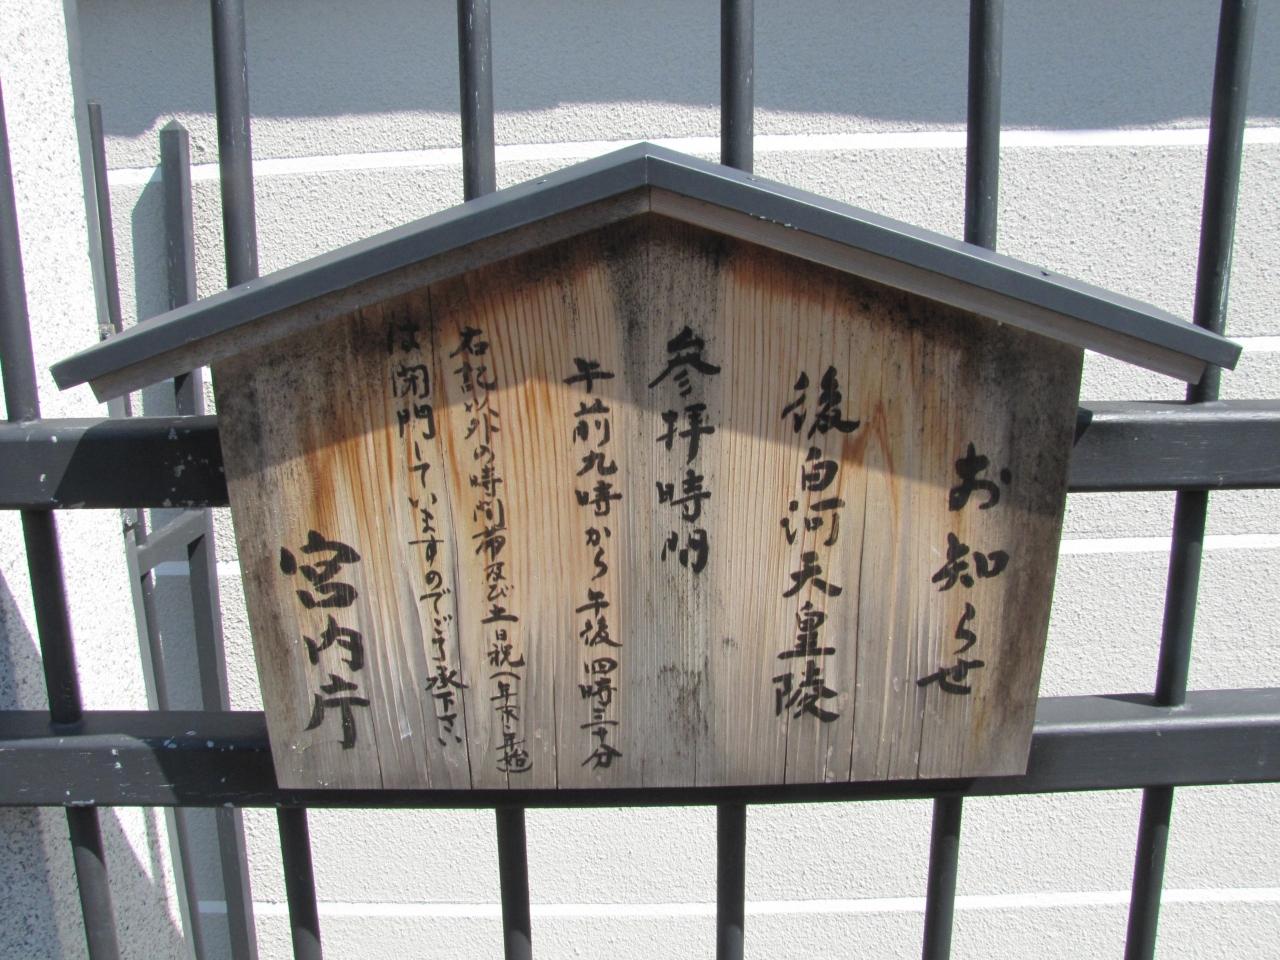 お知らせ
後白河天皇陵
参拝時間
午前九時から午後四時三十分
右記以外の時間帯及び土日祝(年末・年始)
は閉門していますのでご了承下さい
宮内庁